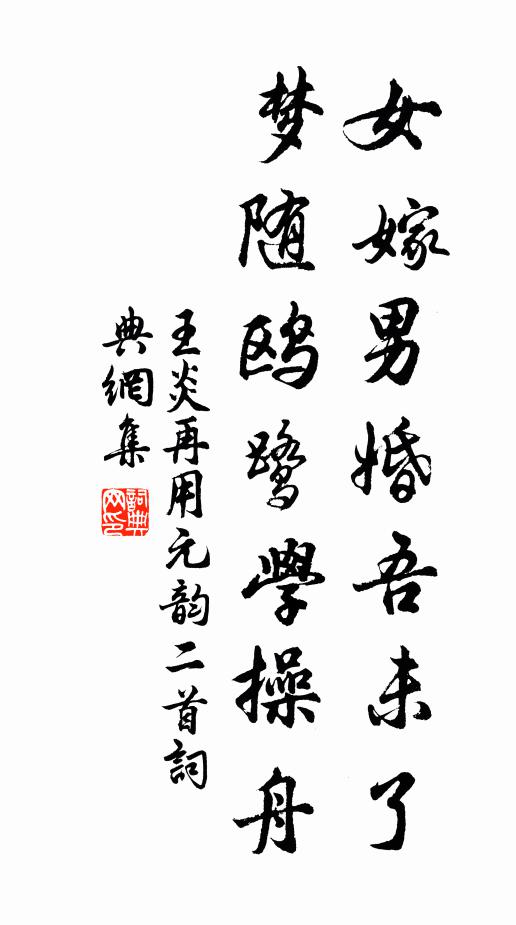 女嫁男婚吾未了
梦随鸥鹭學操舟
王炎再用元韵二首詞
典網集
詞典網印